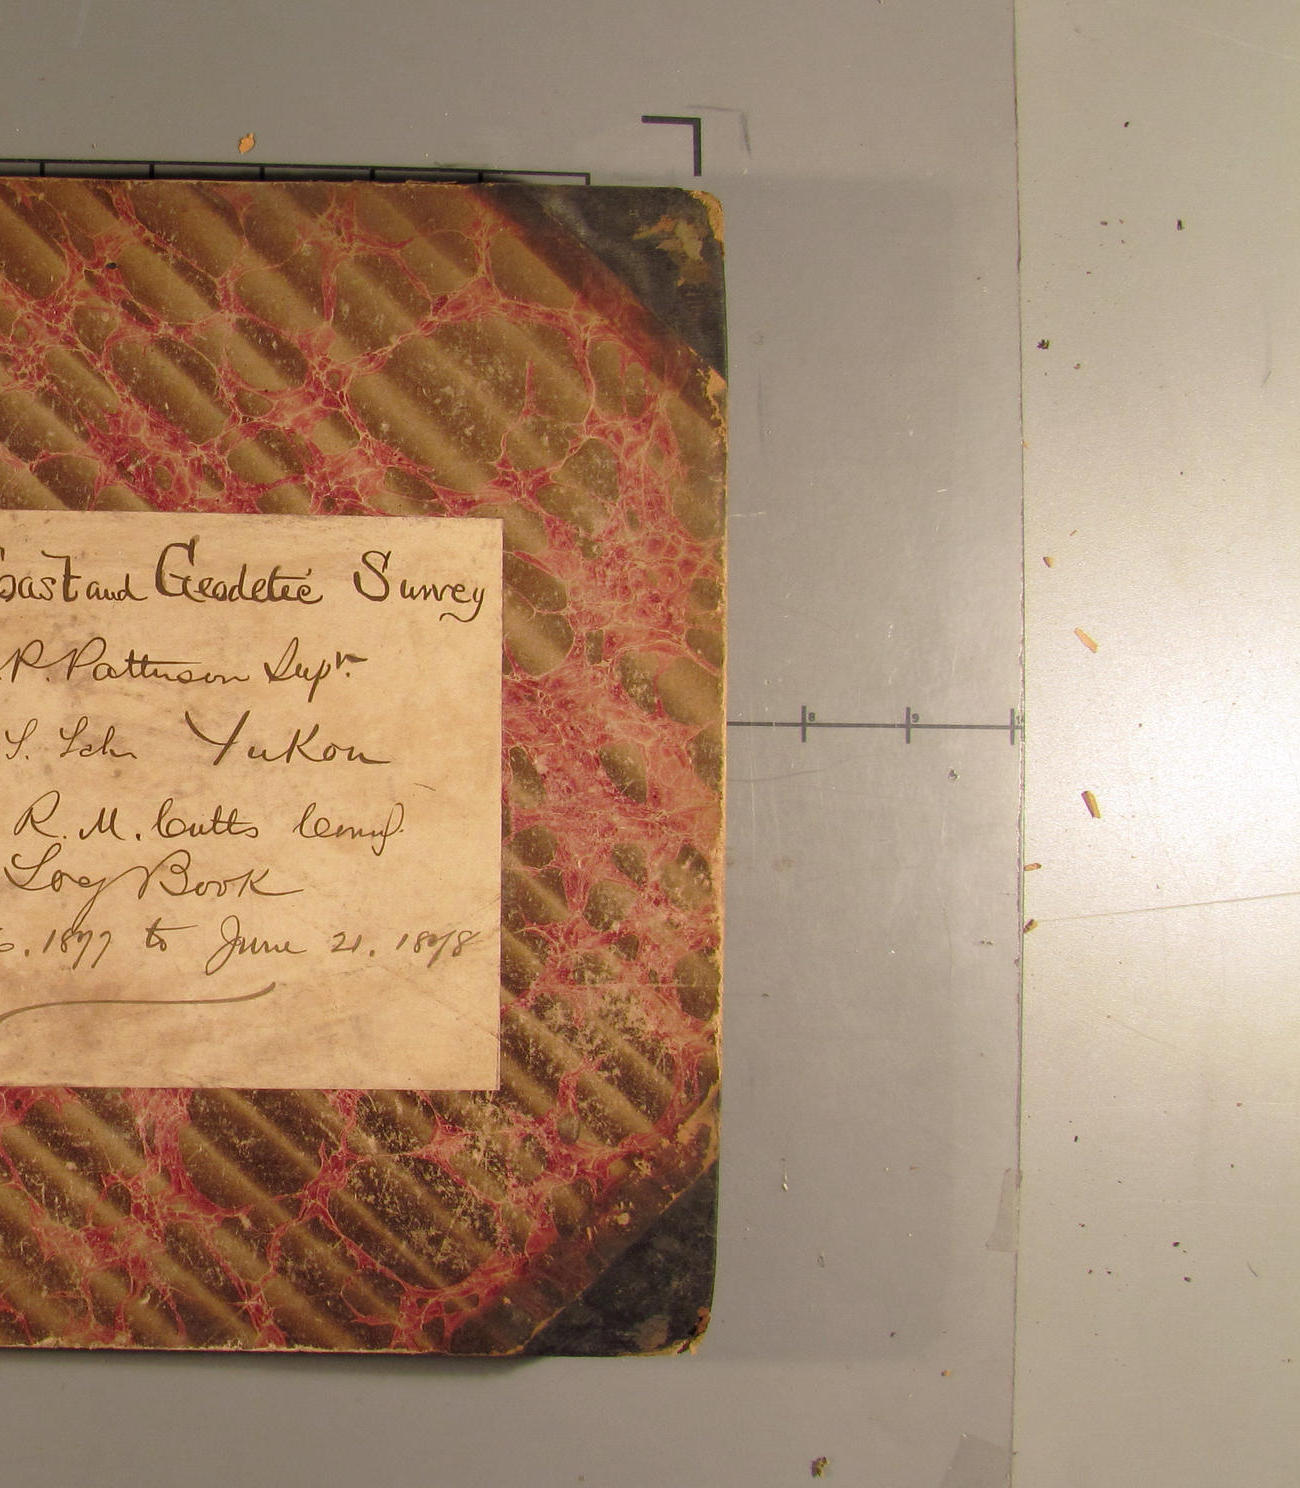 Coast and Geodetic Survey
.P. Patterson Supt.
S. Schr Yukon
R. M. Cutts Comdg.
Log Book
6. 1877 to June 21. 1878
8 9